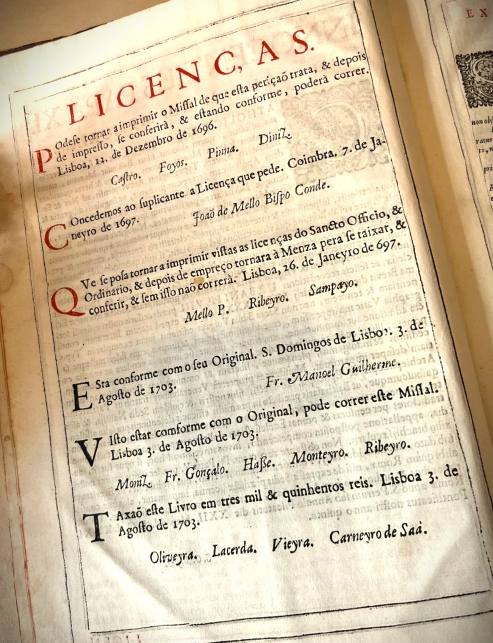 LICENC,AS.
POdese tornar a imprimir o Missal de que esta petiçaõ trata, & depois
de impresso, se conferirà, & estando conforme, poderà correr.
Lisboa, 11. de Dezembro de 1696.
Castro. Foyos. Pinna. Diniz.
COncedemos ao suplicante a Licença que pede. Coimbra, 7. de Ja-
neyro de 1697. Joaõ de Mello Bispo Conde.
QVe se possa tornar a imprimir vistas as licenças do Sancto Officio, &
Ordinario, & depois de empreço tornarà à Menza pera se taixar, &
conferir, & sem isso naõ correrà. Lisboa, 16. de Janeyro de 697.
Mello P. Ribeyro. Sampayo.
ESta conforme com o seu Original. S. Domingos de Lisboa. 3. de
Agosto de 1703. Fr. Manoel Guilherme.
VIsto estar comforme com o Original, pode correr este Missal.
Lisboa 3. de Agosto de 1703.
Moniz. Fr. Gonçalo. Hasse. Monteyro. Ribeyro.
TAxaõ este Livro em tres mil & quinhentos reis. Lisboa 3. de
Agosto de 1703.
Oliveyra. Lacerda. Vieyra. Carneyro de Saá.
EX